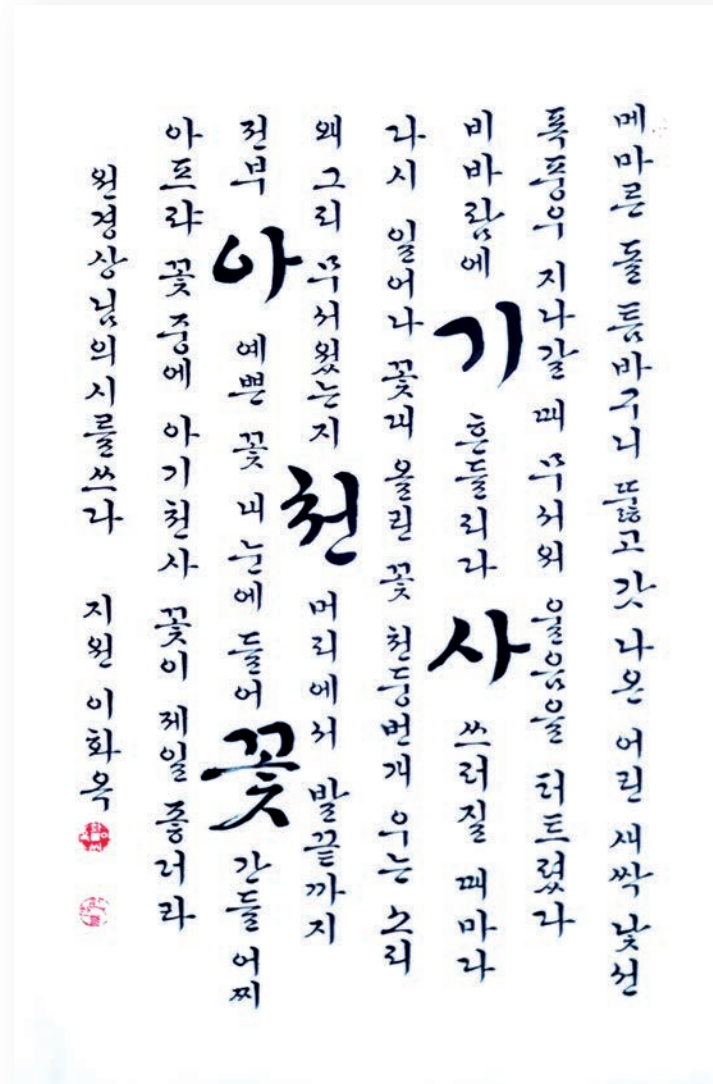 아기천사꽃
메마른 돌 틈바구니 뚫고 갓 나온 어린 새싹 낯선
폭풍우 지나갈 때 무서워 울음을 터트렸다
비바람에 흔들리다 쓰러질 때마다
다시 일어나 꽃대 올린 꽃 천둥번개 우는 소리
왜 그리 무서웠는지 머리에서 발끝까지
전부 예쁜 꽃 내 눈에 들어 간들 어찌
아프랴 꽃 중에 아기천사 꽃이 제일 좋더라
원경상님의시를쓰다 지원 이화옥